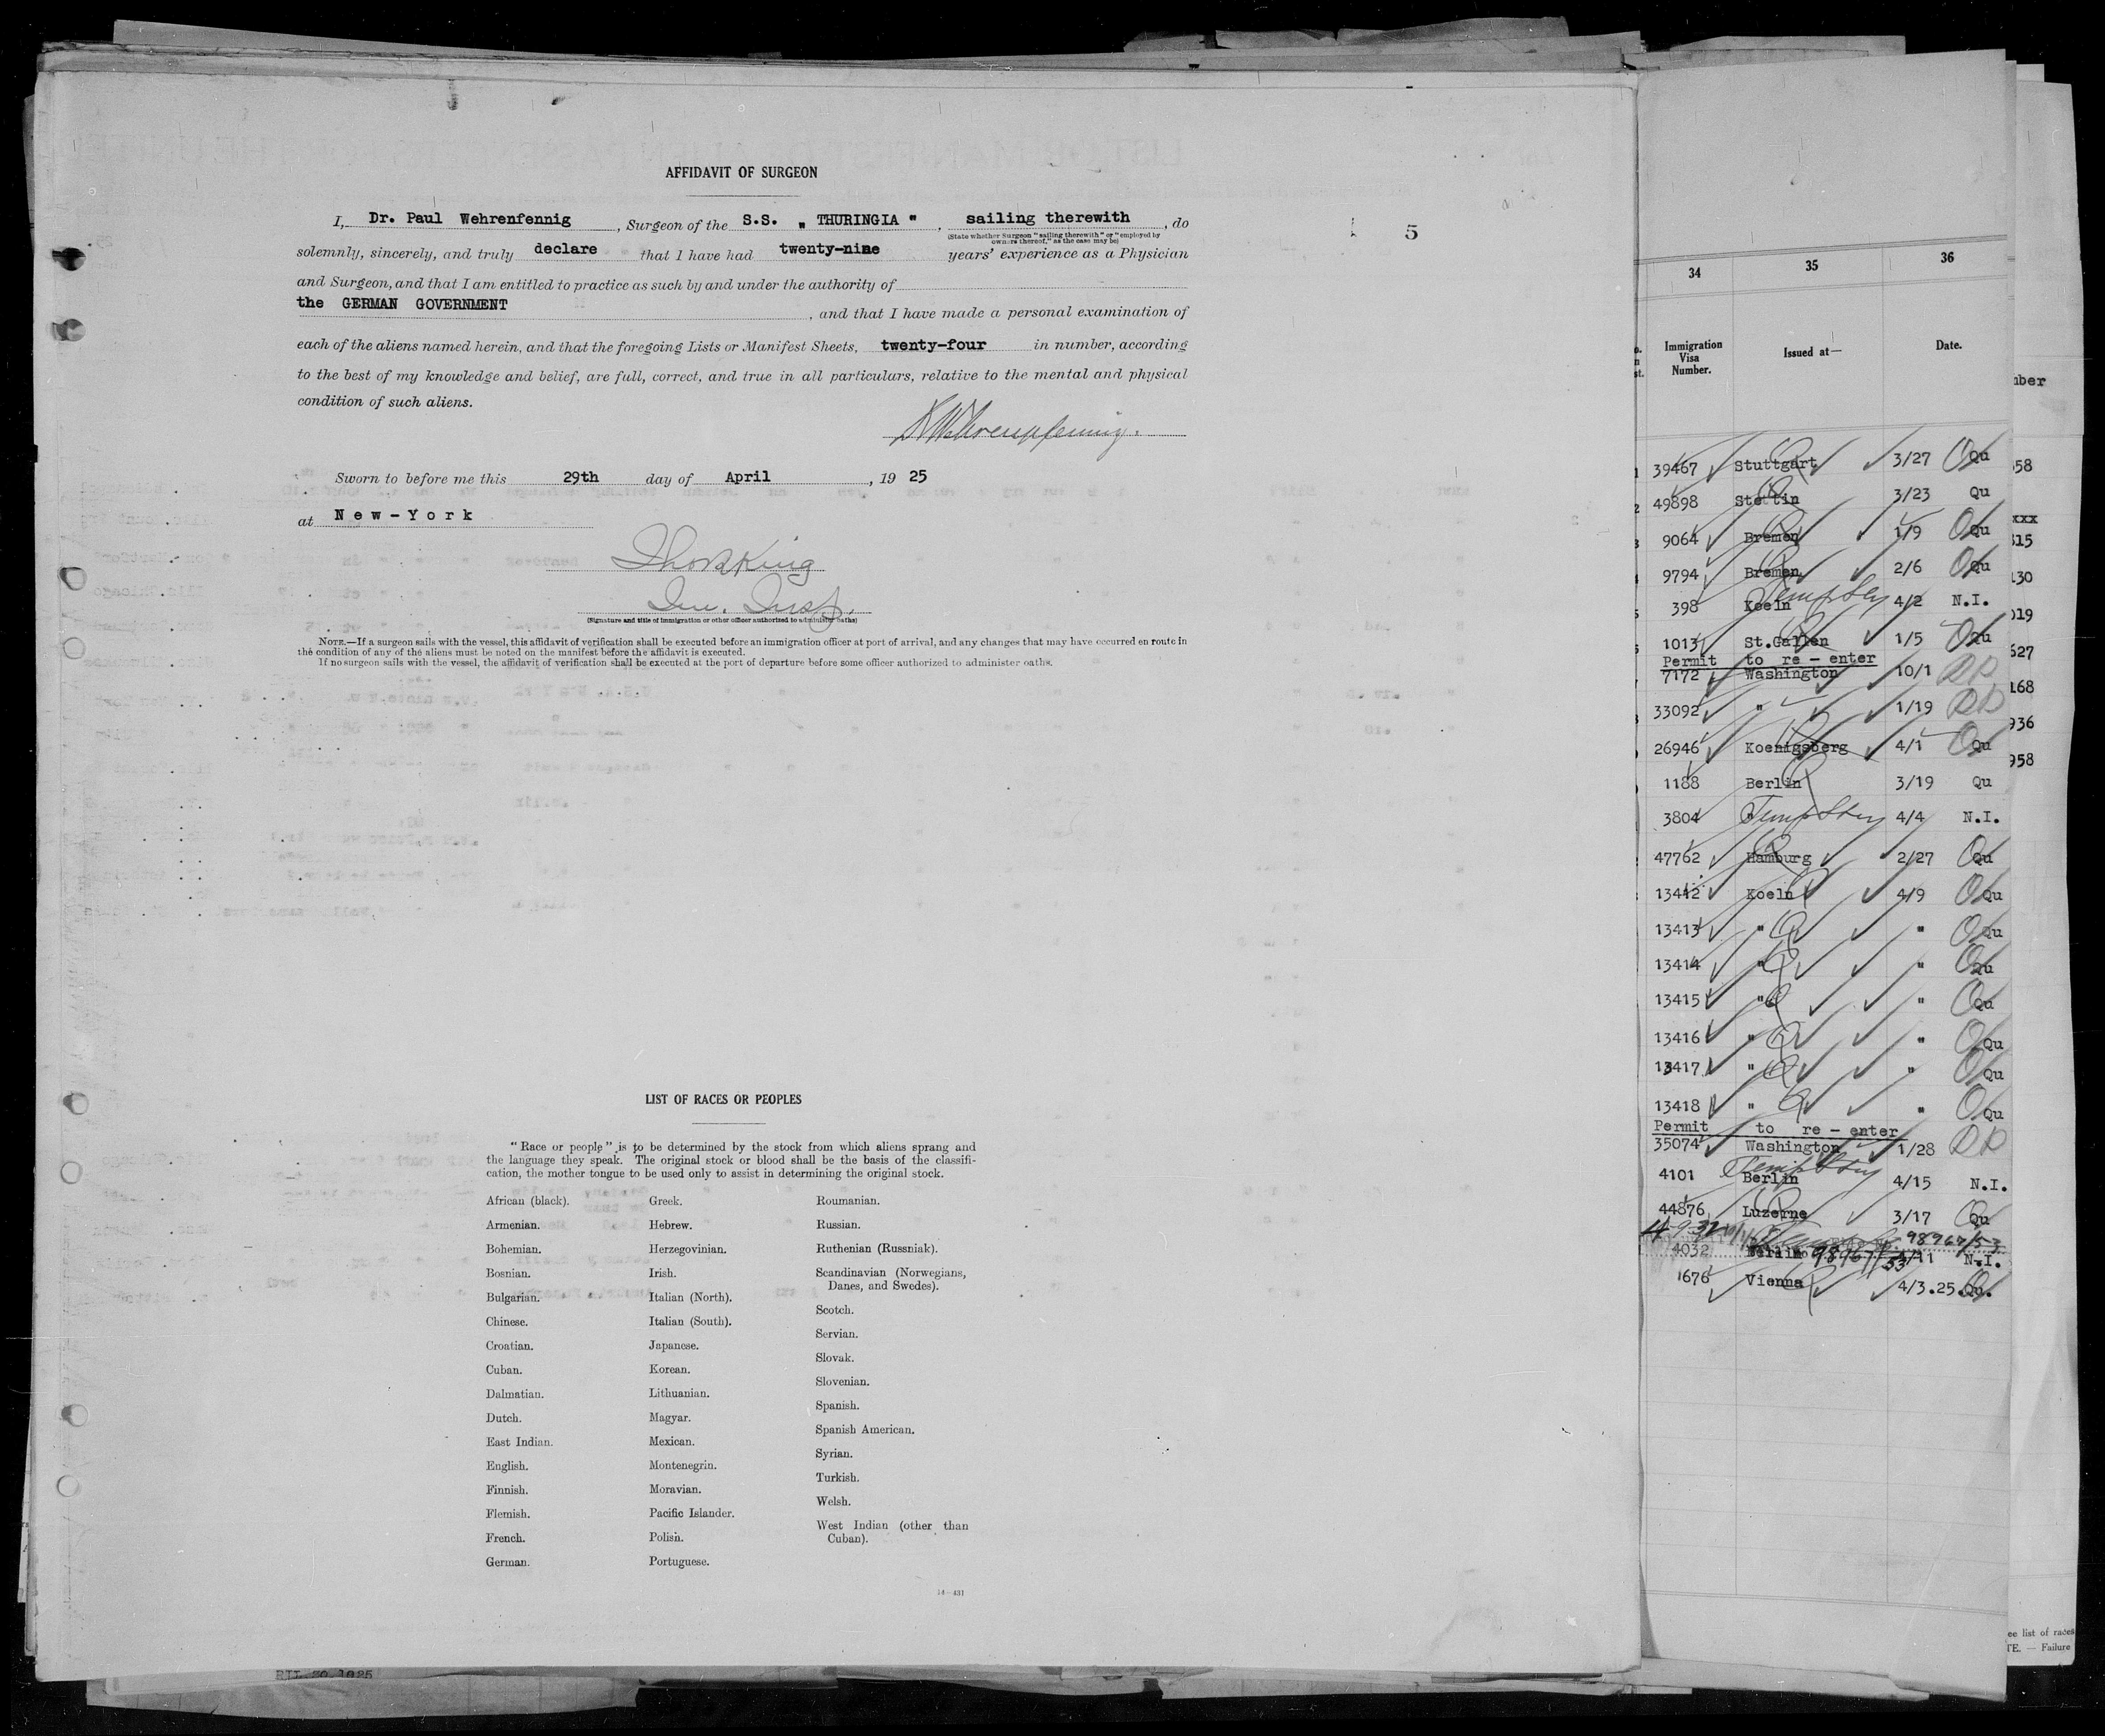 AFFIDAVIT OF SURGEON
I, Dr. Paul Wehrenfennig, Surgeon of the S.S. „ THURINGIA ", sailing therewith, do
(State whether Surgeon "sailing therewith" or "employed by
owners thereof," as the case may be)
solemnly, sincerely, and truly declare that I have had twenty-nine years' experience as a Physician
and Surgeon, and that I am entitled to practice as such by and under the authority of
the GERMAN GOVERNMENT, and that I have made a personal examination of
each of the aliens named herein, and that the foregoing Lists or Manifest Sheets, twenty-four in number, according
to the best of my knowledge and belief, are full, correct, and true in all particulars, relative to the mental and physical
condition of such aliens.
Sworn to before me this 29th day of April, 19 25
at New-York
Imm. Insp.
(Signature and title of immigration or other officer authorized to administer oaths)
NOTE.—If a surgeon sails with the vessel, this affidavit of verification shall be executed before an immigration officer at port of arrival, and any changes that may have occurred en route in
the condition of any of the aliens must be noted on the manifest before the affidavit is executed.
If no surgeon sails with the vessel, the affidavit of verification shall be executed at the port of departure before some officer authorized to administer oaths.
5
LIST OF RACES OR PEOPLES
"Race or people" is to be determined by the stock from which aliens sprang and
the language they speak. The original stock or blood shall be the basis of the classifi-
cation, the mother tongue to be used only to assist in determining the original stock.
African (black).
Armenian.
Bohemian.
Bosnian.
Bulgarian.
Chinese.
Croatian.
Cuban.
Dalmatian.
Dutch.
East Indian.
English.
Finnish.
Flemish.
French.
German.
Greek.
Hebrew.
Herzegovinian.
Irish.
Italian (North).
Italian (South).
Japanese.
Korean.
Lithuanian.
Magyar.
Mexican.
Montenegrin.
Moravian.
Pacific Islander.
Polish.
Portuguese.
Roumanian.
Russian.
Ruthenian (Russniak).
Scandinavian (Norwegians,
Danes, and Swedes).
Scotch.
Servian.
Slovak.
Slovenian.
Spanish.
Spanish American.
Syrian.
Turkish.
Welsh.
West Indian (other than
Cuban).
14—431
34 35 36
Immigration
Visa
Number.
Issued at—
Date.
39467 Stuttgart 3/27 Qu
49898 Stettin 3/23 Qu
9064 Bremen 1/9 Qu
9794 Bremen 2/6 Qu
398 Koeln Temp Stay 4/2 N.I.
1013 St.Gallen 1/5 Qu
Permit to re - enter
7172 Washington 10/1
33092 " 1/19
26946 Koenigsberg 4/1 Qu
1188 Berlin 3/19 Qu
3804 " Temp Stay 4/4 N.I.
47762 Hamburg 2/27 Qu
13412 Koeln 4/9 Qu
13413 " " Qu
13414 " " Qu
13415 " " Qu
13416 " " Qu
13417 " " Qu
13418 " " Qu
Permit to re - enter
35074 Washington 1/28
4101 Temp Stay Berlin 4/15 N.I.
44876 Luzerne 3/17 Qu
98967/53
4032 Berlin 98967/53 N.I.
1676 Vienna 4/3.25.Qu.